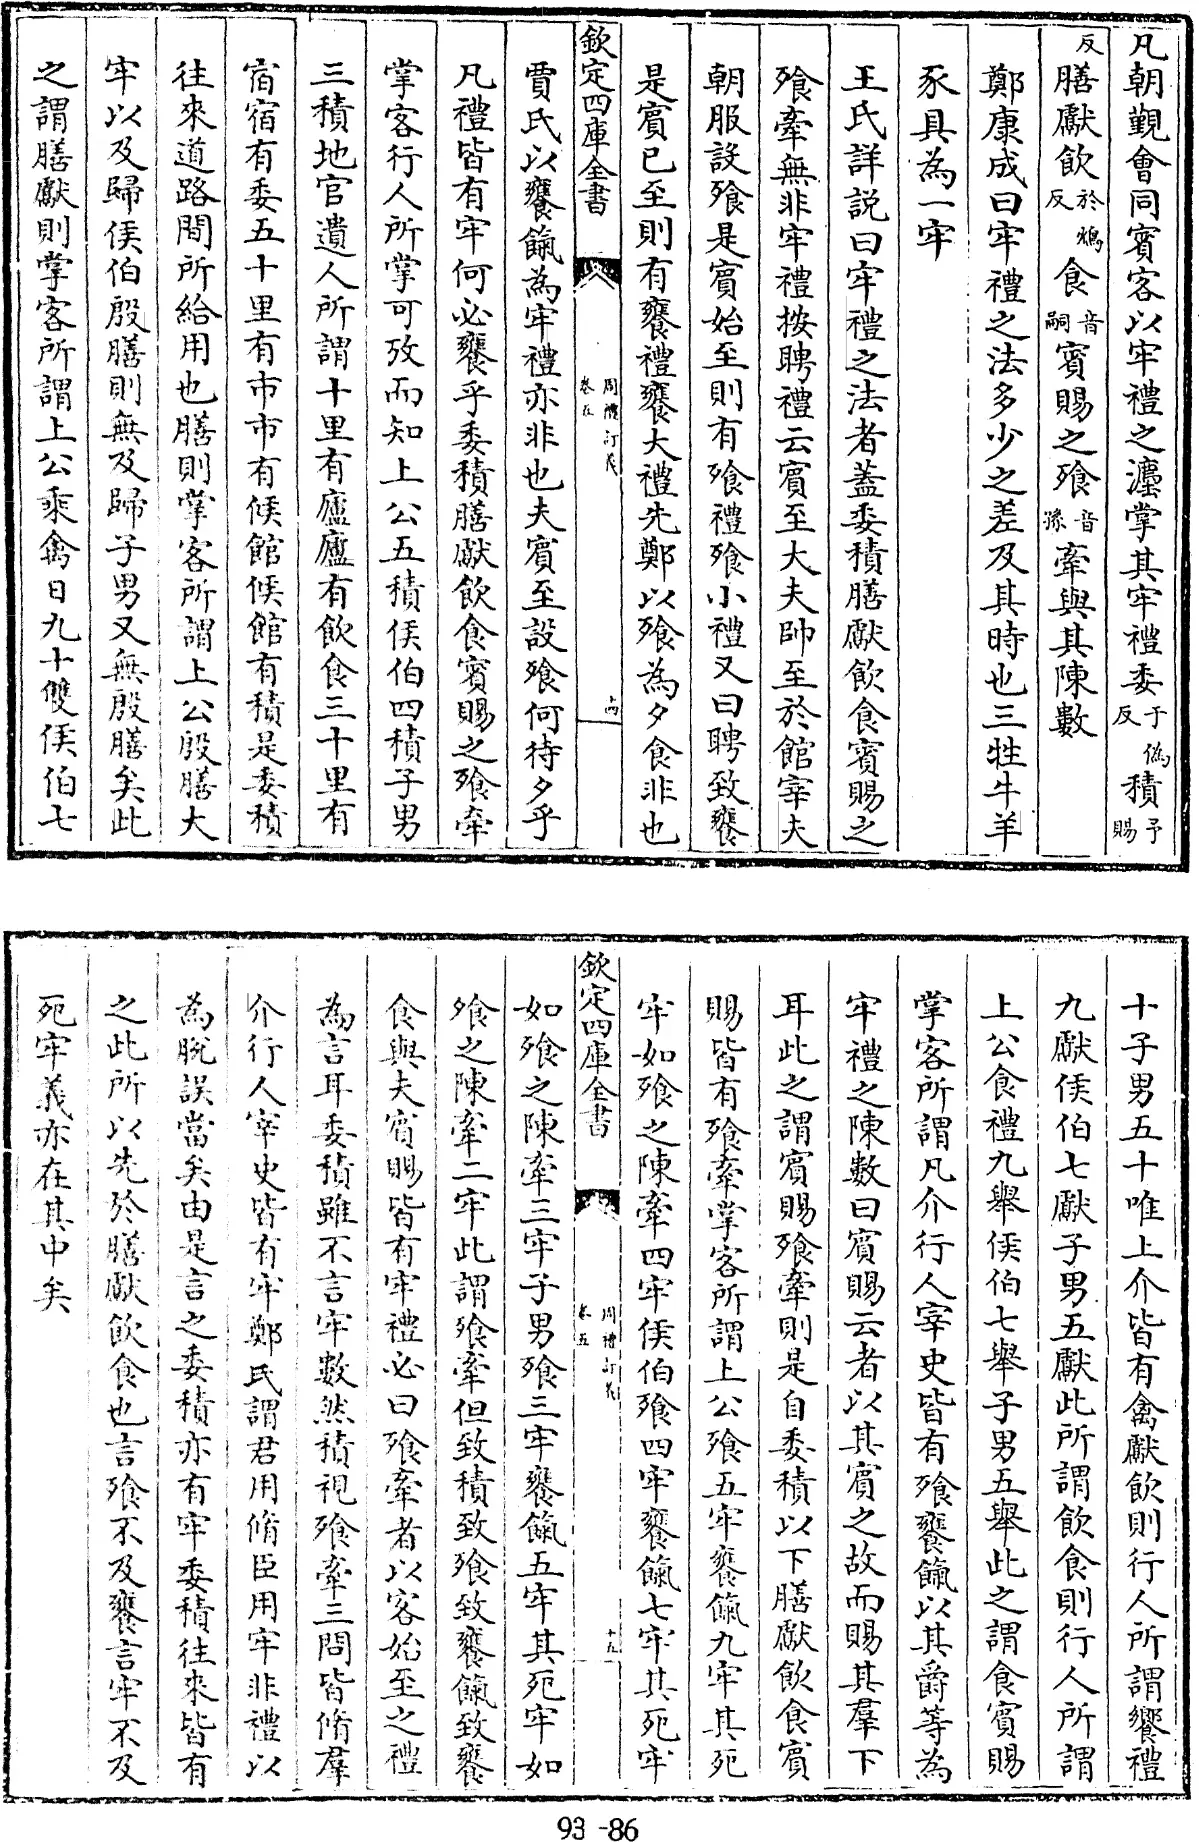 凡朝覲會同賓客以牢禮之灋掌其牢禮委于偽反積予賜
反膳獻飲於鴆反食音嗣賓賜之飱音豫牽與其陳數
鄭康成曰牢禮之法多少之差及其時也三牲牛羊
豕具為一牢
王氏詳説曰牢禮之法者蓋委積膳獻飲食賓賜之
飱牽無非牢禮按聘禮云賓至大夫帥至於館宰夫
朝服設飱是賓始至則有飱禮飱小禮又曰聘致饔
是賓已至則有饔禮饔大禮先鄭以飱為夕食非也
欽定四庫全書
周禮訂義
卷五
十四
賈氏以饔餼為牢禮亦非也夫賓至設飱何待夕乎
凡禮皆有牢何必饔乎委積膳獻飲食賓賜之飱牽
掌客行人所掌可攷而知上公五積侯伯四積子男
三積地官遺人所謂十里有廬廬有飲食三十里有
宿宿有委五十里有市市有候館候館有積是委積
往來道路間所給用也膳則掌客所謂上公殷膳大
牢以及歸侯伯殷膳則無及歸子男又無殷膳矣此
之謂膳獻則掌客所謂上公乘禽日九十雙侯伯七
十子男五十唯上介皆有禽獻飲則行人所謂饗禮
九獻侯伯七獻子男五獻此所謂飲食則行人所謂
上公食禮九舉侯伯七舉子男五舉此之謂食賓賜
掌客所謂凡介行人宰史皆有飱饔餼以其爵等為
牢禮之陳數曰賓賜云者以其賓之故而賜其羣下
耳此之謂賓賜飱牽則是自委積以下膳獻飲食賓
賜皆有飱牽掌客所謂上公飱五牢饔餼九牢其死
牢如飱之陳牽四牢侯伯飱四牢饔餼七牢其死牢
欽定四庫全書
周禮訂義
卷五
十五
如飱之陳牽三牢子男飱三牢饔餼五牢其死牢如
飱之陳牽二牢此謂飱牽但致積致飱致饔餼致饔
食與夫賓賜皆有牢禮必曰飱牽者以客始至之禮
為言耳委積雖不言牢數然積視飱牽三問皆脩羣
介行人宰史皆有牢鄭氏謂君用脩臣用牢非禮以
為脫誤當矣由是言之委積亦有牢委積往來皆有
之此所以先於膳獻飲食也言飱不及饔言牢不及
死牢義亦在其中矣
93-86